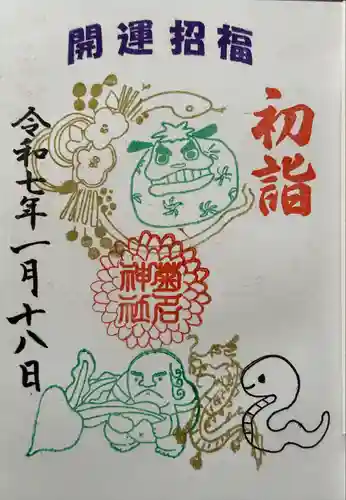 開運招福
初詣
菊石
神社
令和七年一月十八日